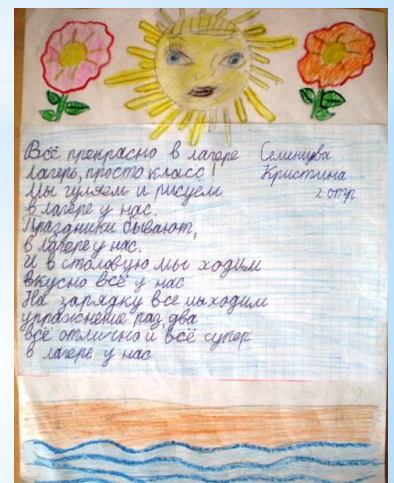 Всё прекрасно в лагере
Лагерь, просто класс!
Мы гуляем и рисуем
в лагере у нас.
Праздники бывают,
в лагере у нас.
И в столовую мы ходим
вкусно всё у нас
На зарядку все выходим
упражнение раз, два
всё отлично и всё супер
в лагере у нас
Семенцова
Кристина
2 отр